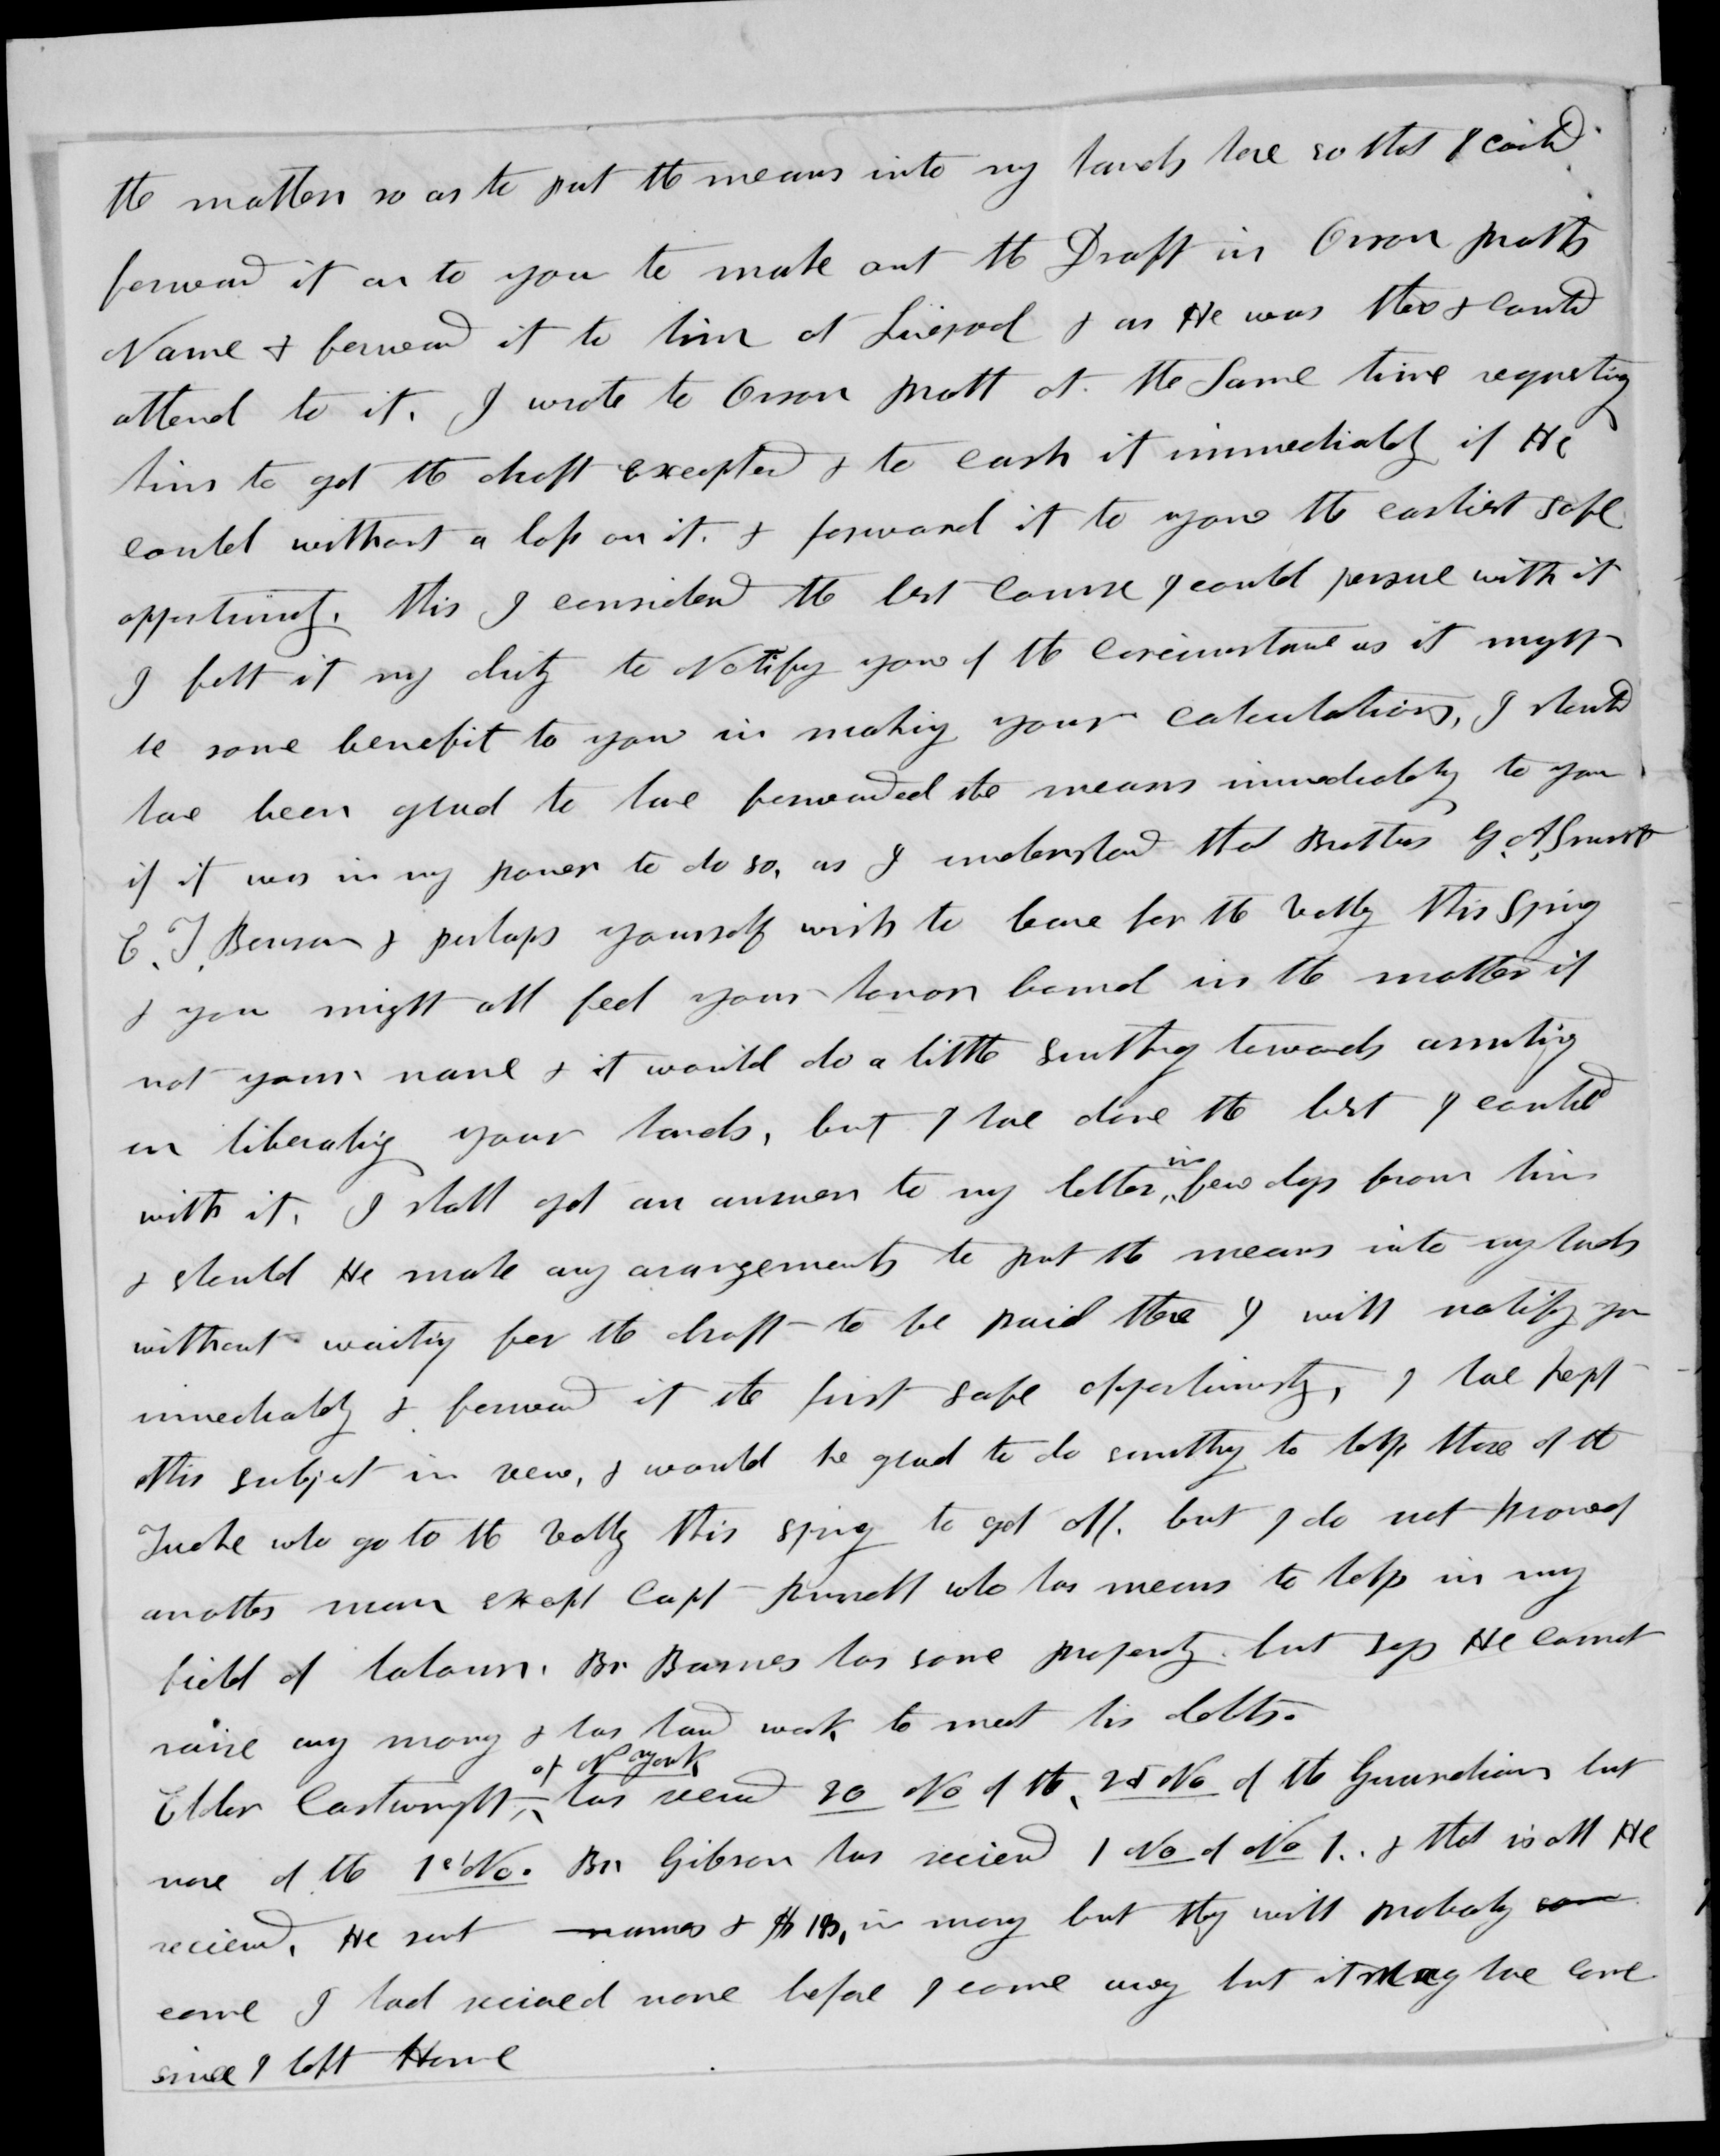 the matter so as to put the means into my hands here so that I could
forward it on to you to make out the Draft in Orson Pratts
Name & forward it to him at Liverpool & as He was there & could
attend to it. I wrote to Orson Pratt at the Same time requesting
him to get the draft excepted & to cash it immediately if He
could without a loss on it. & forward it to you the earliest safe
opportunity. this I considerd the best course I could persue with it
I felt it my duty to Notify you of the circumstance as it might
be some benefit to you in making your calculations, I should
have been glad to have forwarded the means immediately to you
if it was in my power to do so, as I understand that Brothers G. A. Smith
E. T. Benson & perhaps yourself wish to leave for the vally this Spring
& you might all feel your honor bound in the matter if
not your name & it would do a little sumthing towards assisting
in liberating your hands, but I have done the best I could
with it. I shall get an answer to my letter, in few days from him
& should He make any arangements to put the means into my hands
without waiting for the draft to be paid there I will notify you
immediately & forward it the first safe opportunity, I have kept
this subject in view, & would be glad to do sumthing to help those of the
Twelve who go to the vally this spring to get off. but I do not know of
another man except Capt Russell who has means to help in my
field of labour. Br Barnes has some property. but says He cannot
raise any mony & has hard work to meet his debts.
Elder Cartwright, of N York has receievd 20 No of the, 2d No of the Guardian but
none of the 1st No. Br Gibson has recievd 1 No of No 1.. & that is all He
recievd. He sent names & $ in mony but they will probably
come I had recieved none before I came away but it may have come
since I left Home